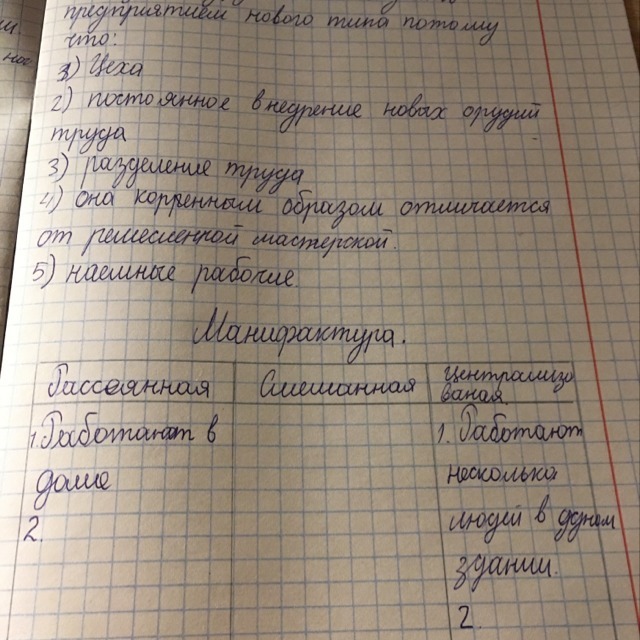 предприятием нового типа потому
что:
1) Цеха
2) постоянное внедрение новых орудий
труда
3) разделение труда
4) она корренным образом отличается
от ремесленной мастерской.
5) наемные рабочие.
Манифактура.
Рассеянная Смешанная Централизо
ваная.
1. Работают в
доме
2.
1. Работают
несколько
людей в одном
здании.
2.